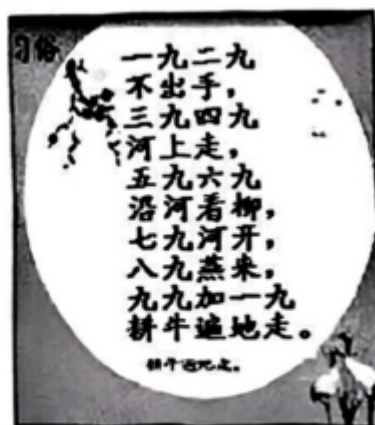 习俗
一九二九
不出手，
三九四九
河上走，
五九六九
沿河看柳，
七九河开，
八九燕来，
九九加一九
耕牛遍地走。
耕牛遍地走。